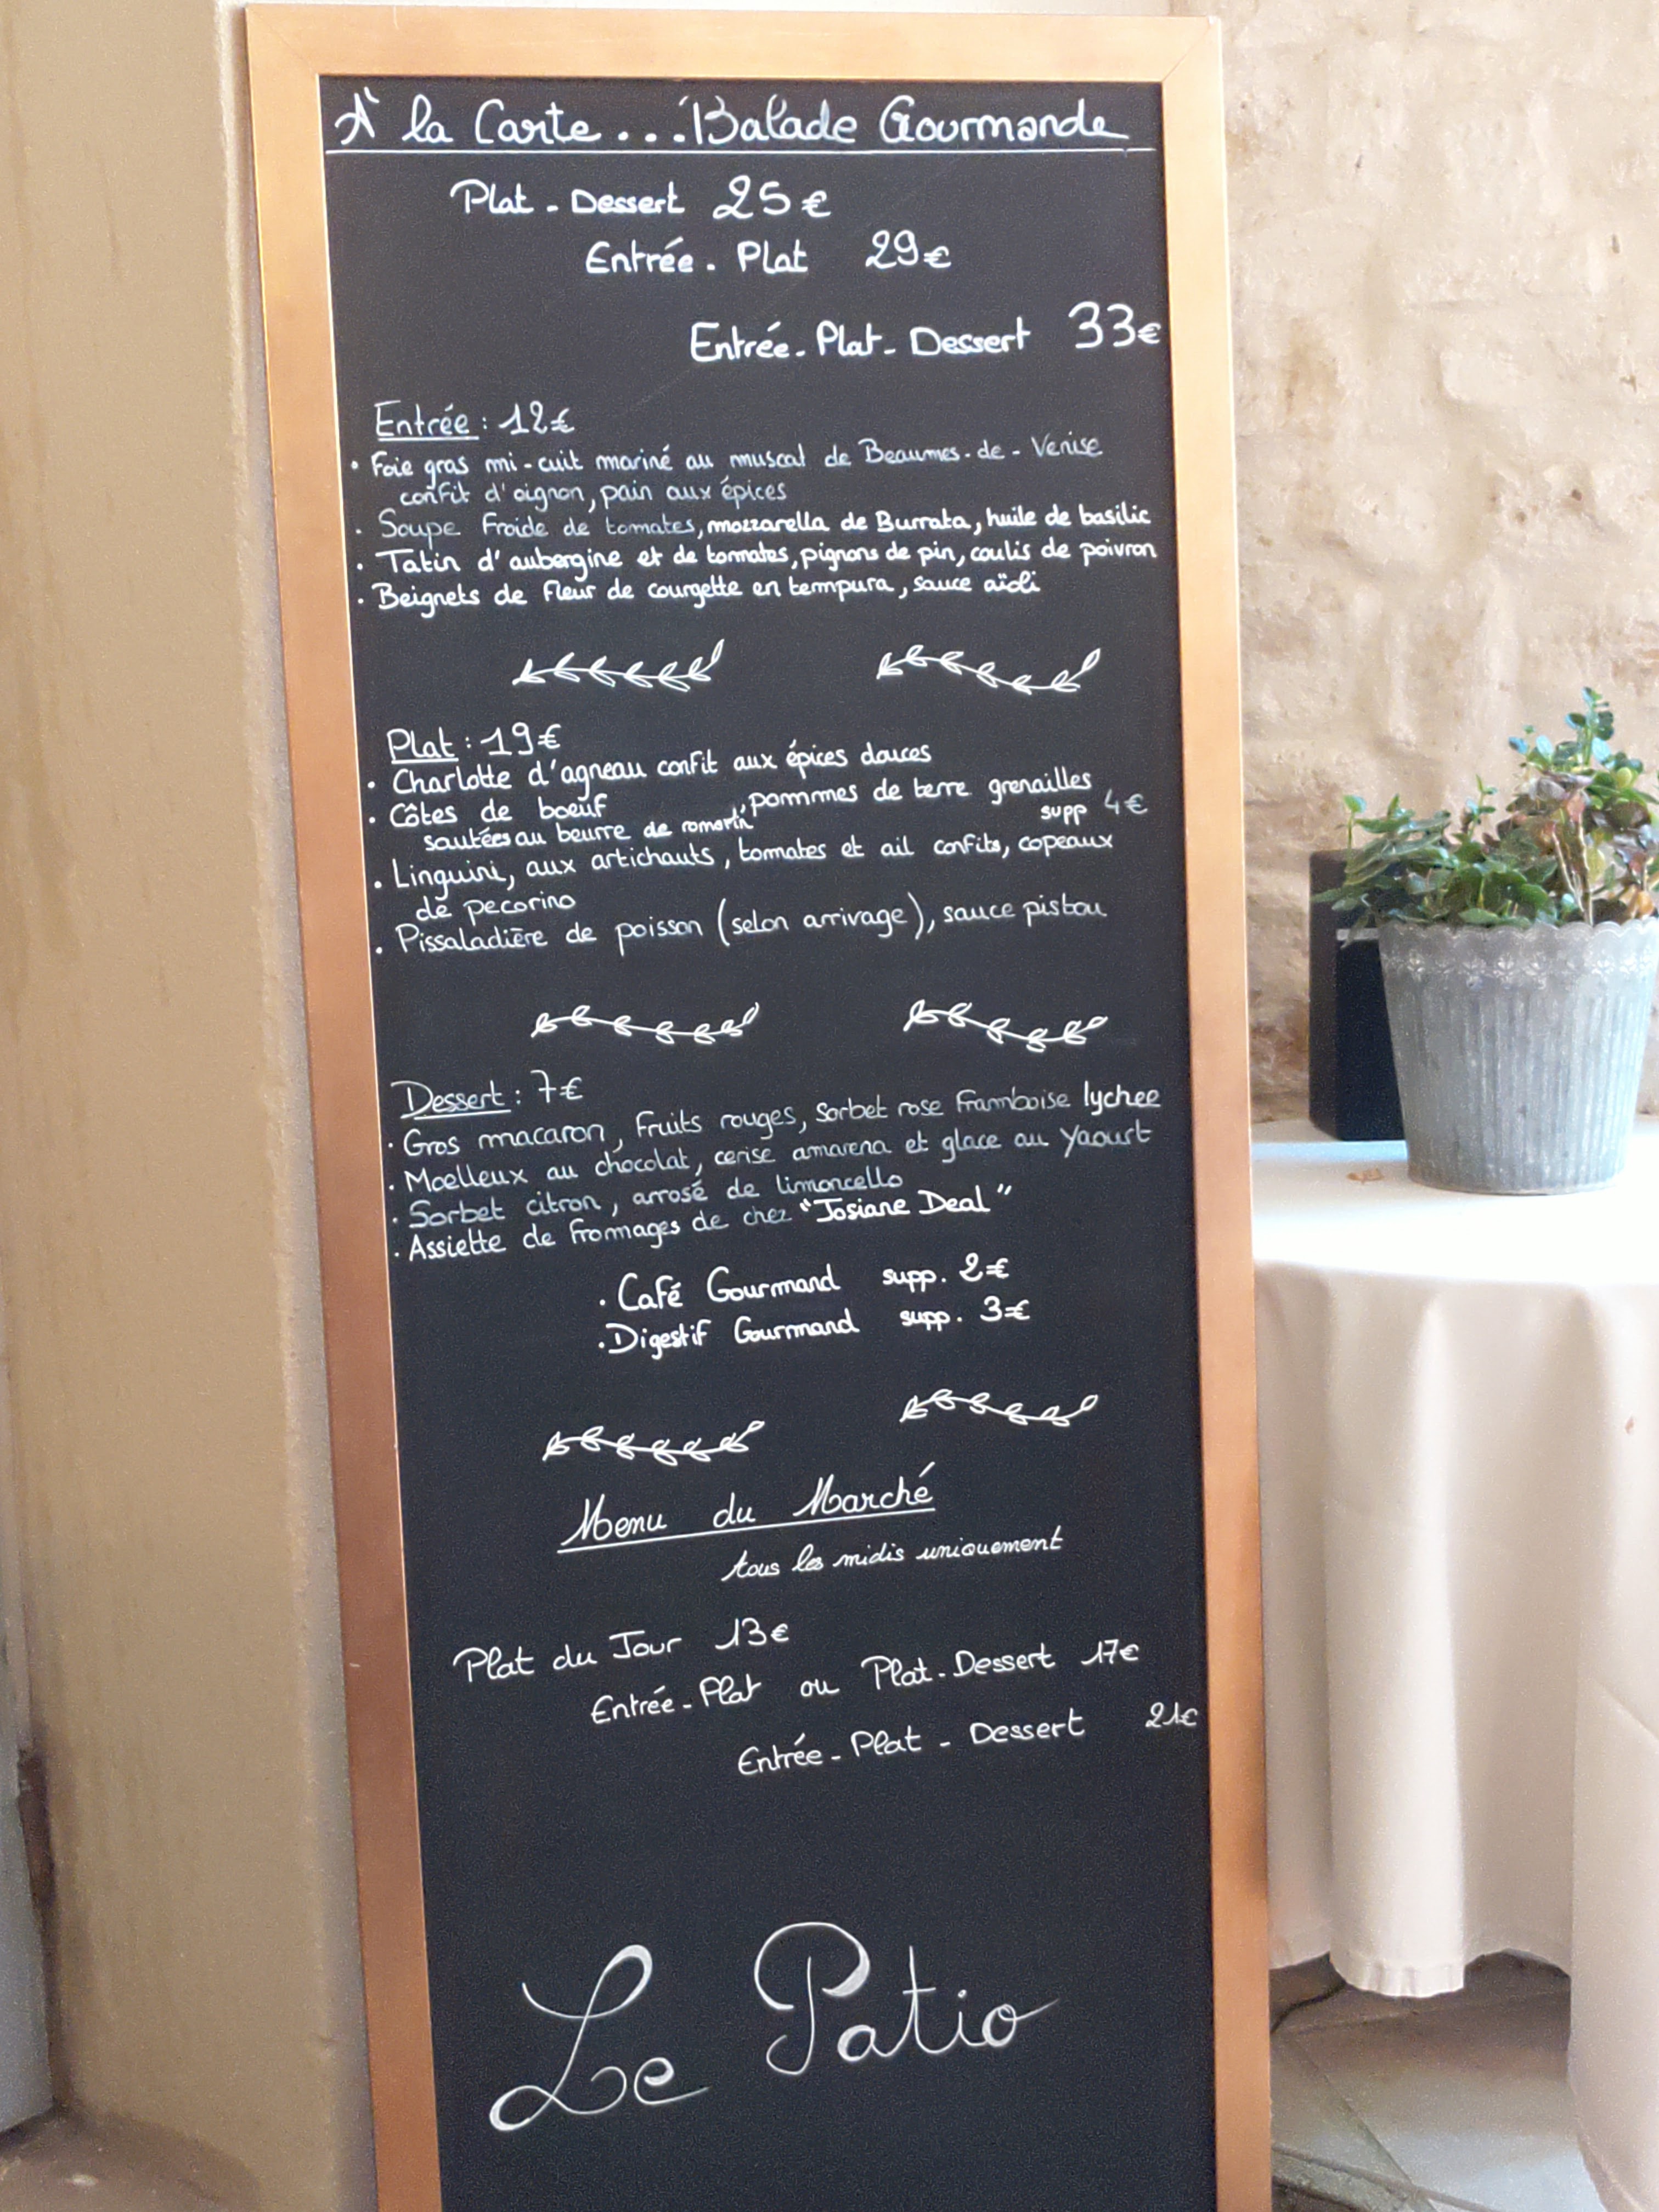 A la Carte... Balade Gourmande
Plat - Dessert 25€
Entrée - Plat 29€
Entrée - Plat - Dessert 33€
Entrée : 12€
• Foie gras mi-cuit mariné au muscat de Beaumes-de-Venise
confit d'oignon, pain aux épices
• Soupe Froide de tomates, mozzarella de Burrata, huile de basilic
• Tatin d'aubergine et de tomates, pignons de pin, coulis de poivron
• Beignets de fleur de courgette en tempura, sauce aïoli
Plat : 19€
• Charlotte d'agneau confit aux épices douces
• Côtes de boeuf, pommes de terre grenailles
sautées au beurre de romarin supp 4€
• Linguini, aux artichauts, tomates et ail confits, copeaux
de pecorino
• Pissaladière de poisson (selon arrivage), sauce pistou
Dessert : 7€
• Gros macaron, fruits rouges, sorbet rose framboise lychee
• Moelleux au chocolat, cerise amarena et glace au yaourt
• Sorbet citron, arrosé de limoncello
• Assiette de fromages de chez "Josiane Deal"
• Café Gourmand supp. 2€
• Digestif Gourmand supp. 3€
Menu du Marché
tous les midis uniquement
Plat du Jour 13€
Entrée - Plat ou Plat - Dessert 17€
Entrée - Plat - Dessert 21€
Le Patio